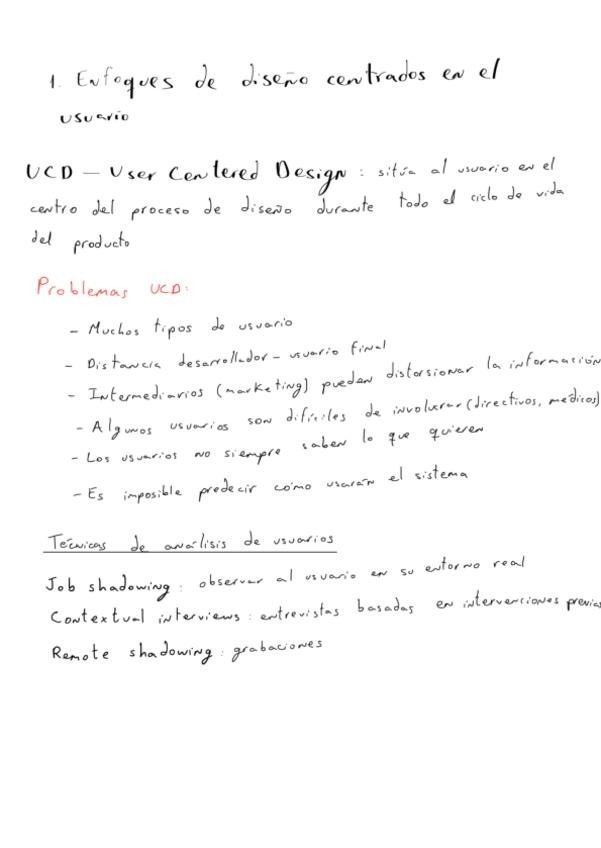 1. Enfoques de diseño centrados en el
usuario
UCD – User Centered Design : sitúa al usuario en el
centro del proceso de diseño durante todo el ciclo de vida
del producto
Problemas UCD:
- Muchos tipos de usuario
- Distancia desarrollador - usuario final
- Intermediarios (marketing) pueden distorsionar la información
- Algunos usuarios son difíciles de involucrar (directivos, medicos)
- Los usuarios no siempre saben lo que quieren
- Es imposible predecir cómo usarán el sistema
Técnicas de análisis de usuarios
Job shadowing : observar al usuario en su entorno real
Contextual interviews : entrevistas basadas en intervenciones previas
Remote shadowing : grabaciones